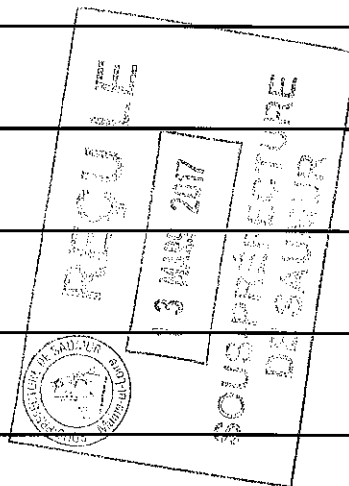 REÇU LE
13 MARS 2017
SOUS-PRÉFECTURE
DE SAUMUR
SOUS-PREFECTURE DE SAUMUR